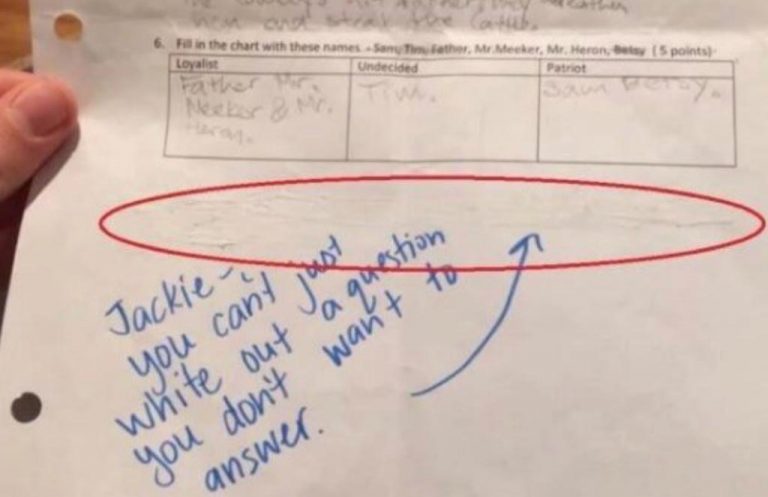 hen and steal the cattle.
6. Fill in the chart with these names - Sam, Tim, Father, Mr.Meeker, Mr. Heron, Betsy ( 5 points)
Loyalist Undecided Patriot
Father Mr. Tim. Sam Betsy.
Meeker & Mr.
Heron.
Jackie-
you can't just
white out a question
you don't want to
answer.